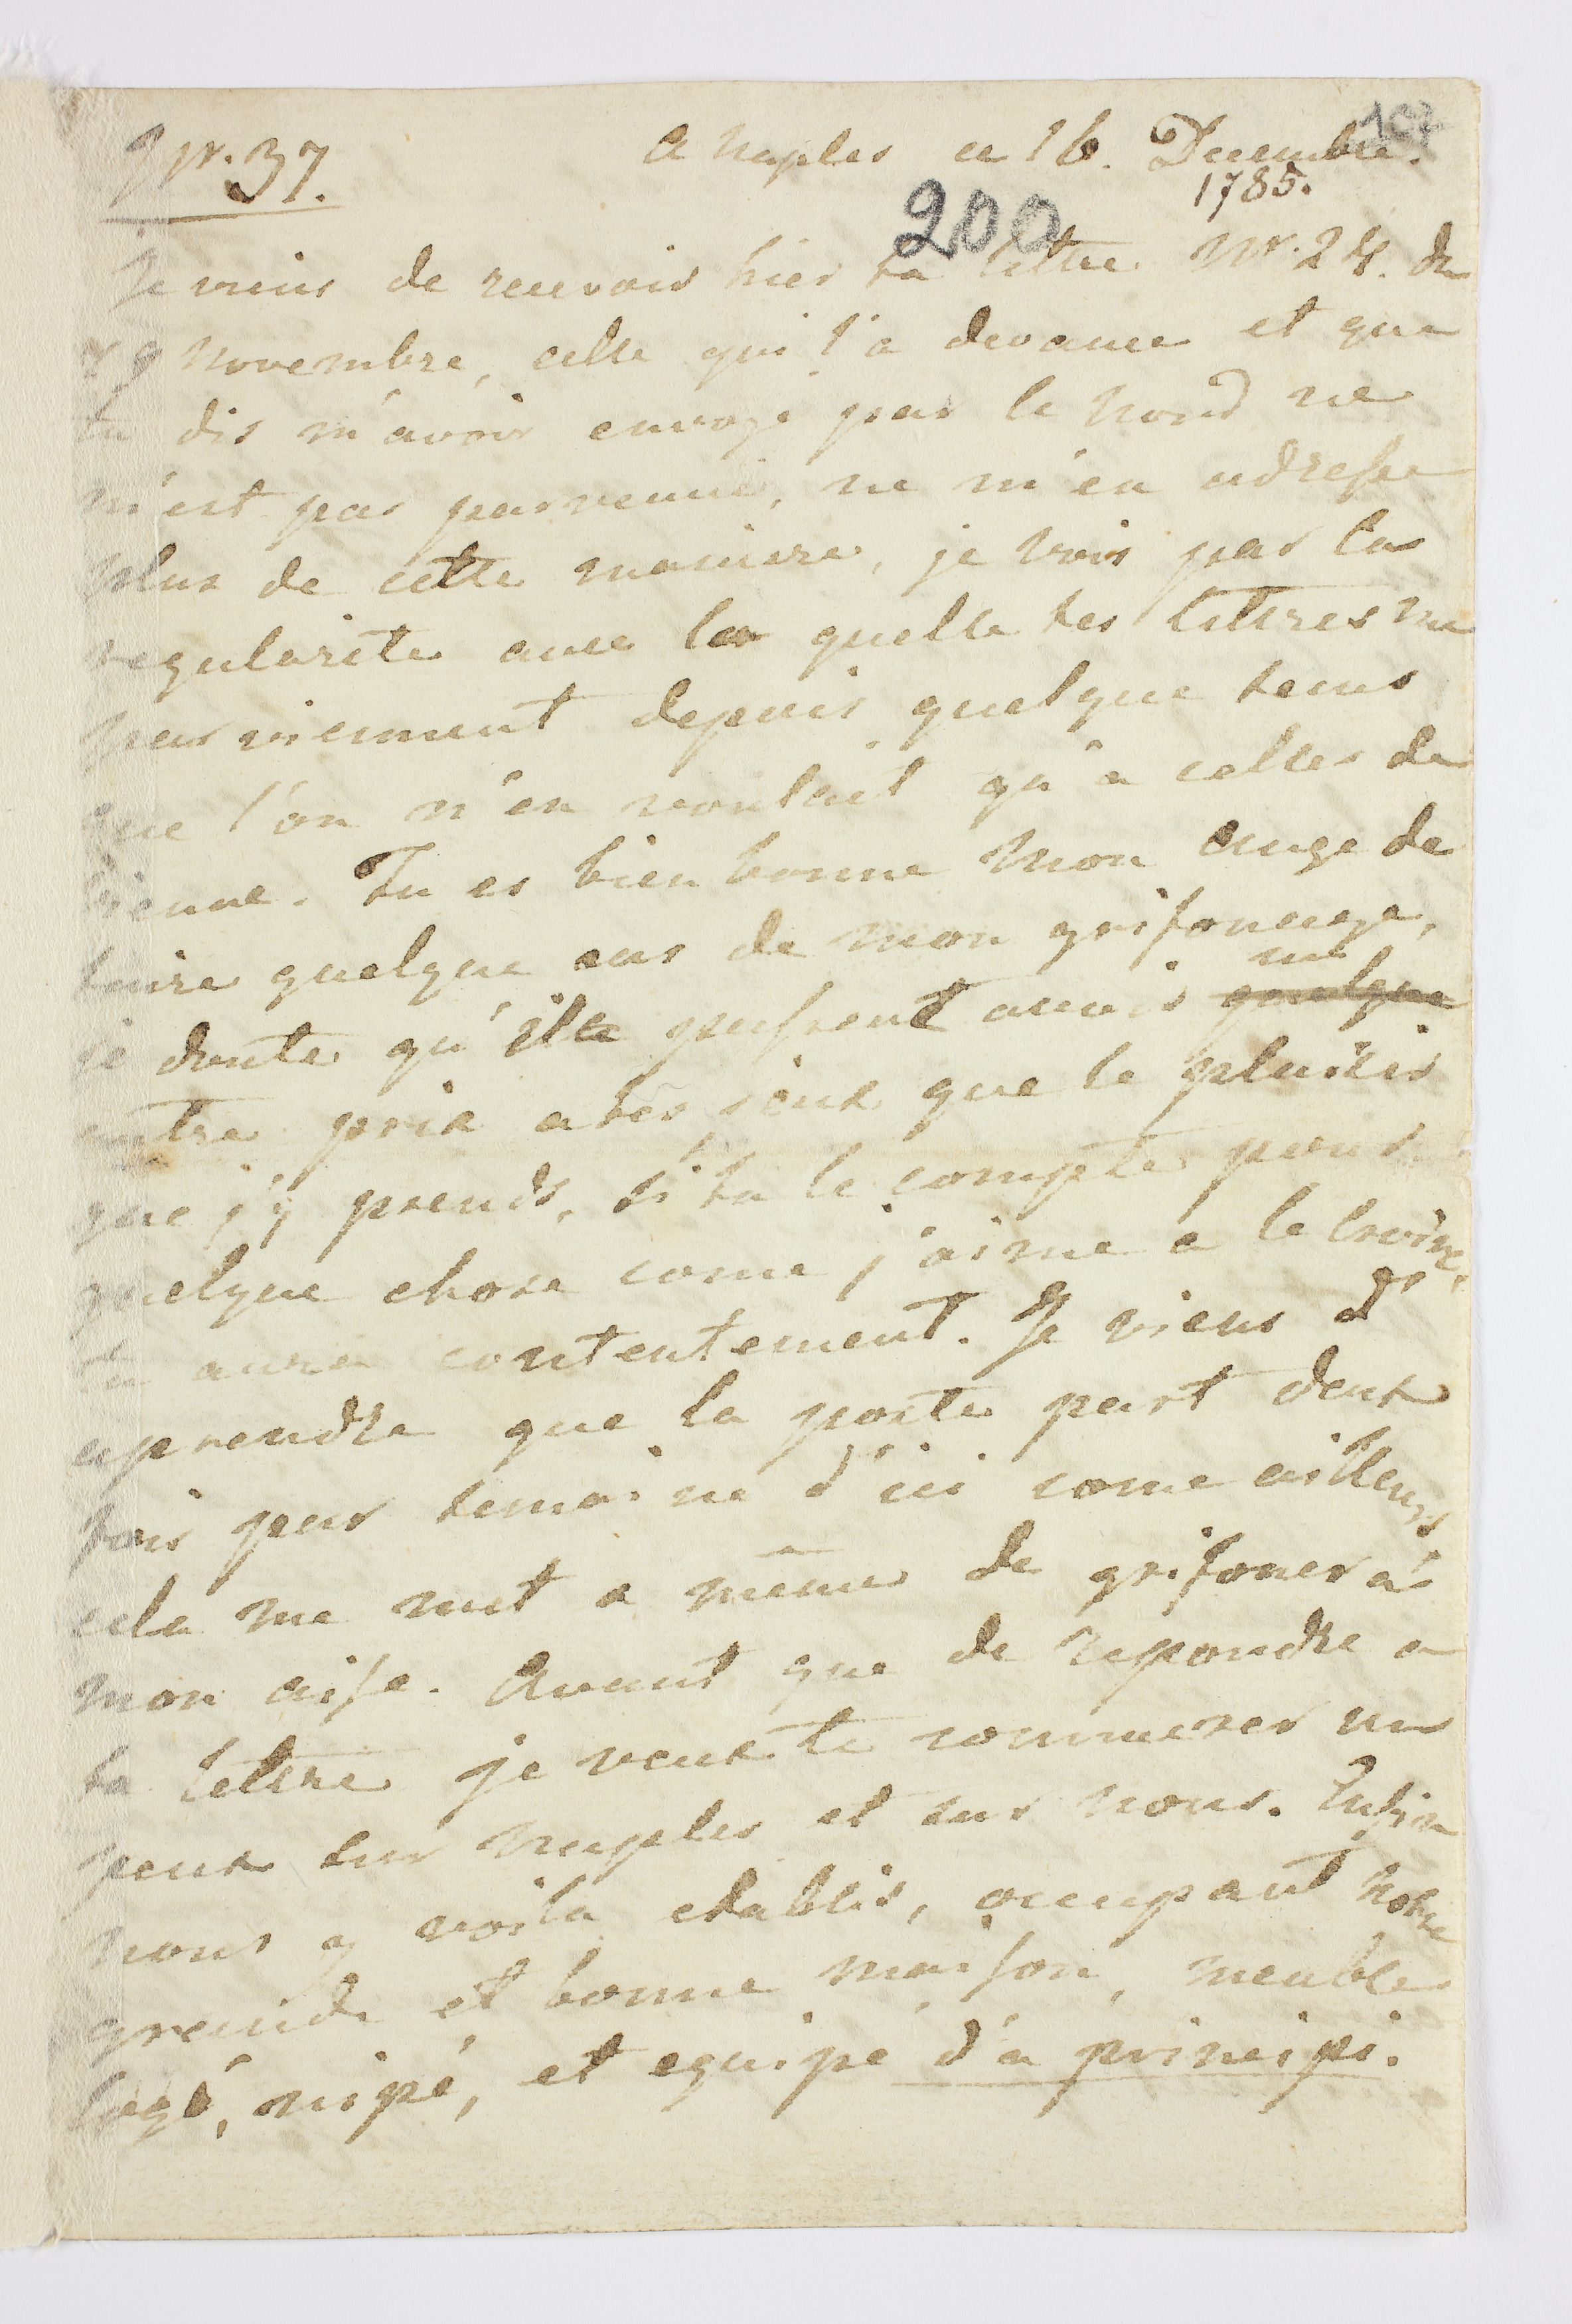 Nr. 37. a Naples ce 16. Decembre.
107
1785.
200
Je viens de recevoir hier ta lettre Nr. 24. du
29 Novembre, celle qui l'a devancé et que
tu dis m'avoir envoyé par le Nord ne
m'est pas parvenue, ne m'en adresse
plus de cette maniere, je vois par la
regularite avec la quelle tes lettres me
parviennent depuis quelque tems
que l'on n'en voulait qu'a celles de
Vienne. Tu es bien bonne Mon Ange de
faire quelque cas de mon grifonage,
un
je doute qu'ils puissent avoir quelque
autre prix a tes ieux que le plaisir
que j'y prends, si tu le compte pour
quelque chose come j'aime a le croire,
tu aura contentement. Je viens d'
aprendre que la poste part deux
fois par semaine d'ici come ailleurs,
cela me met a même de grifoner à
mon aise. Avant que de repondre a
ta lettre je veux te ramener un
peux sur Naples et sur nous. Enfin
nous y voila etablis, occupant notre
grande et bonne maison, meublé
logé, nipé, et equipé d'a principi.